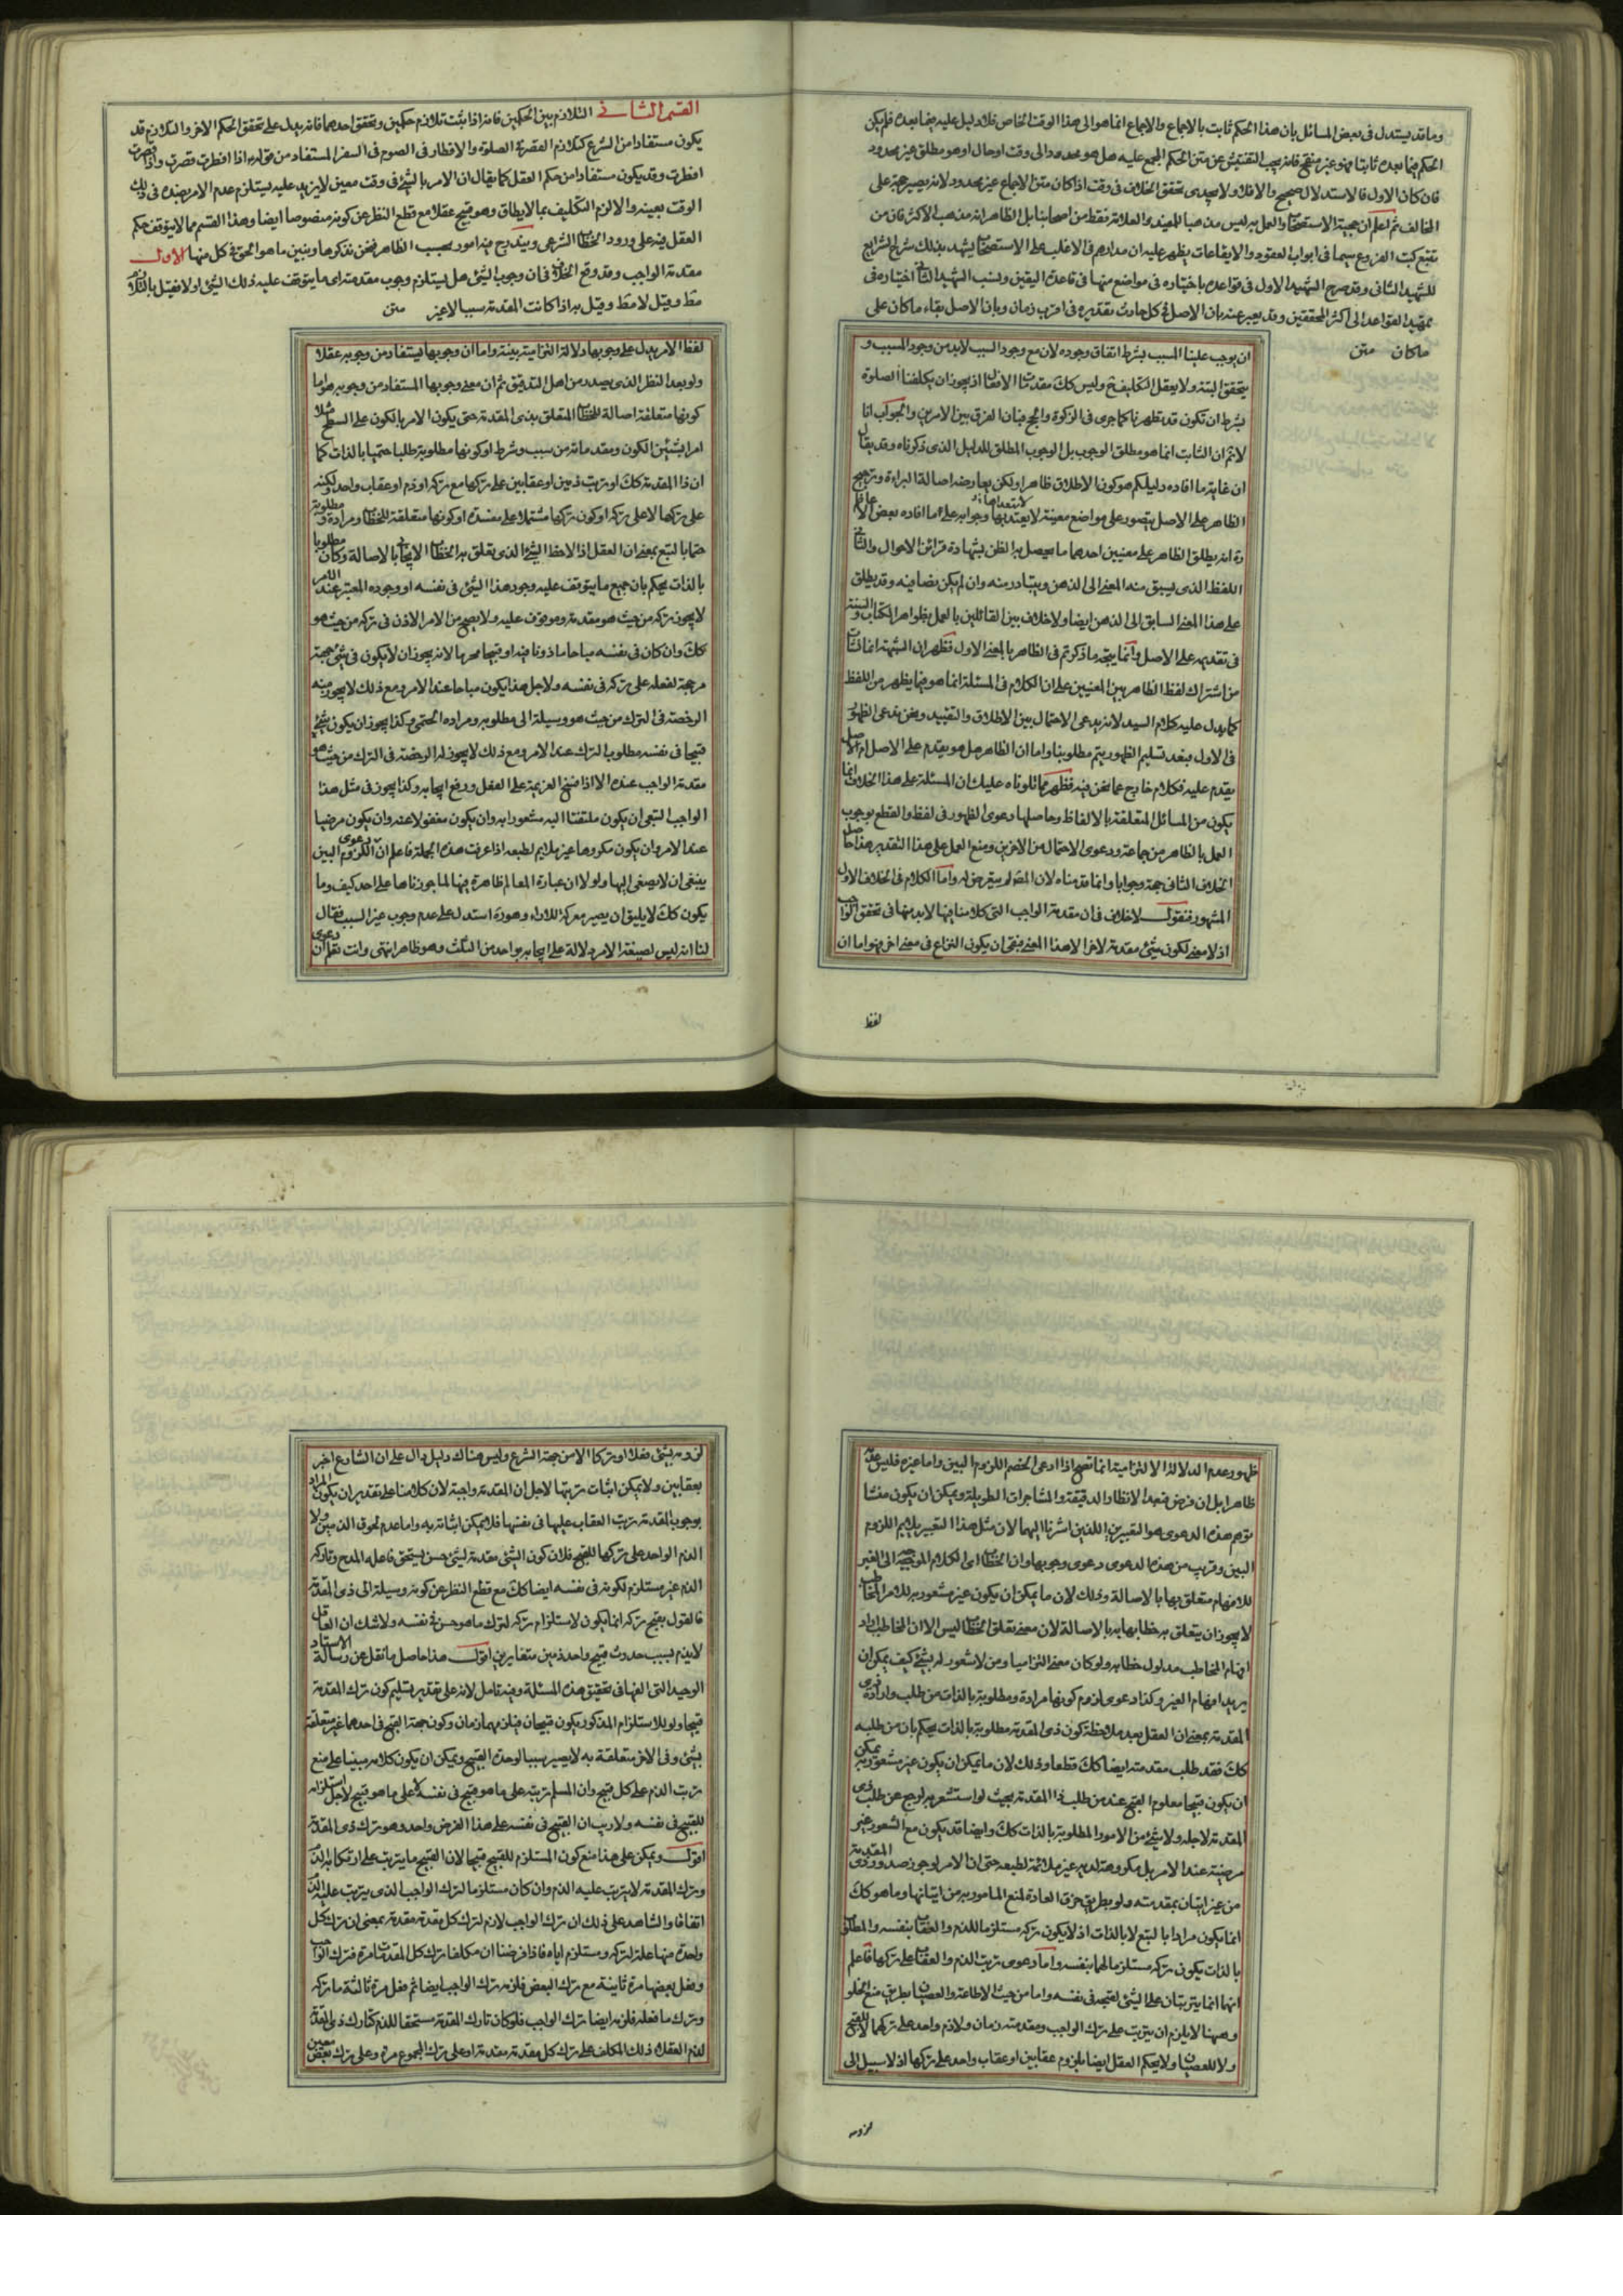 وما قد يستدل فى بعض المسائل بان هذا الحكم ثابت بالاجماع والاجماع انما هو الى هذا الوقت الخاص فلا دليل عليه فيما بعده فلم يكن
الحكم فيما بعده ثابتا فهو غير منقح فانه يجب التفتيش عن متن الحكم المجمع عليه هل هو محدود الى وقت او حال او هو مطلق غير محدود
فان كان الاول فالاستدلال صحيح والا فلا ولا يجدى تحقق الخلاف فى وقت اذا كان متن الاجماع غير محدود لانه يصير حجة على
المخالف ثم اعلم ان حجية الاستصحاب والعمل به ليس مذهبا للمفيد والعلامة فقط من اصحابنا بل الظاهر انه مذهب الاكثر فان من
تتبع كتب الفروع سيما فى ابواب العقود والايقاعات يظهر عليه ان مدارهم فى الاغلب على الاستصحاب يشهد بذلك شرح الشرايع
للشهيد الثانى وقد صرح الشهيد الاول فى قواعده باختياره فى مواضع منها فى قاعدة اليقين ونسب الشهيد الثانى اختياره فى
تمهيد القواعد الى اكثر المحققين وقد يعبر عنه بان الاصل فى كل حادث تقديره فى اقرب زمان وبان الاصل بقاء ما كان على
ما كان متن
ان يوجب علينا المسبب بشرط اتفاق وجوده لان مع وجود السبب لا بد من وجود المسبب و
يتحقق البتة ولا يعقل التكليف ح وليس كك مقدمتنا اذ يجوز ان يكلفنا الصلوة
بشرط ان تكون قد تطهرنا كما جرى فى الزكوة والحج فبان الفرق بين الامرين والجواب انا
لانم ان الثابت انما هو مطلق الوجوب بل الوجوب المطلق للدليل الذى ذكرناه وقد يقال
ان غاية ما افاده دليلكم هو كون الاطلاق ظاهرا ولكن يعارضه اصالة البراءة وترجيح
الظاهر على الاصل يتصور على مواضع معينة لا يعتد بها وجوابه على ما افاده بعض الافاضل
انه يطلق الظاهر على معنيين احدهما ما يحصل به الظن بشهادة قرائن الاحوال والثانى
اللفظ الذى يسبق منه المعنى الى الذهن ويتبادر منه وان لم يكن نصا فيه وقد يطلق
على هذا المعنى السابق الى الذهن ايضا ولا خلاف بين القائلين بالعمل بظواهر الكتاب والسنة
فى تقديمه على الاصل وانما يتجه ما ذكرتم فى الظاهر بالمعنى الاول فظهر ان الشبهة انما نشات
من اشتراك لفظ الظاهر بين المعنيين على ان الكلام فى المسئلة انما هو فيما يظهر من اللفظ
كما يدل عليه كلام السيد لانه يدعى الاحتمال بين الاطلاق والتقييد ونحن ندعى الظهور
فى الاول فبعد تسليم الظهور يتم مطلوبنا واما ان الظاهر هل هو يقدم على الاصل ام الاصل
يقدم عليه فكلام خارج عما نحن فيه فظهر مما تلوناه عليك ان المسئلة على هذا الخلاف انما
يكون من المسائل المتعلقة بالالفاظ وحاصلها دعوى الظهور فى لفظ والقطع بوجوب
العمل بالظاهر من جماعة ودعوى الاحتمال من الاخرين ومنع العمل على هذا التقدير هذا حاصل
الخلاف الثانى حجة وجوابا وانما قدمناه لان لم يتعرض له واما الكلام فى الخلاف الاول
المشهور فنقول لا خلاف فى ان مقدمة الواجب التى كلامنا فيها لا بد منها فى تحقق الواجب
اذ لا معنى لكون شىء مقدمة لاخر الا هذا المعنى فبقى ان يكون النزاع فى معنى اخر فهو اما ان
لفظ
القسم الثانى التلازم بين الحكمين فانه اذا ثبت تلازم حكمين وتحقق احدهما فانه يدل على تحقق الحكم الاخر والتلازم قد
يكون مستفادا من الشرع كتلازم القصر فى الصلوة والافطار فى الصوم فى السفر المستفاد من قوله اذا افطرت قصرت واذا قصرت
افطرت وقد يكون مستفادا من حكم العقل كما يقال ان الامر بالشىء فى وقت معين لا يزيد عليه يستلزم عدم الامر بضده فى ذلك
الوقت بعينه والا لزم التكليف بما لا يطاق وهو قبيح عقلا مع قطع النظر عن كونه منصوصا ايضا وهذا القسم مما لا يتوقف حكم
العقل فيه على ورود الخطاب الشرعى ويندرج فيه امور بحسب الظاهر فنحن نذكرها ونبين ما هو الحق فى كل منها الاول
مقدمة الواجب وقد وقع الخلاف فى ان وجوب الشىء هل يستلزم وجوب مقدمته اى ما يتوقف عليه ذلك الشىء او لا فقيل
مط وقيل لا مط وقيل به اذا كانت المقدمة سببا لا غير متن
لفظ الامر يدل على وجوبها دلالة التزامية بينة واما ان وجوبها يستفاد من وجوبه عقلا
ولو بعد النظر الذى يصدر من اهل التدقيق ثم ان معنى وجوبها المستفاد من وجوبه هو اما
كونها متعلقة اصالة للخطاب المتعلق بذى المقدمة حتى يكون الامر بالكون على السطح مثلا
امرا بشيئين الكون ومقدماته من سبب وشرط او كونها مطلوبة طلبا حتميا بالذات كما
ان ذا المقدمة كك او ترتب ذمين او عقابين على تركها مع تركه او ذم او عقاب واحد ولكنه
على تركها لا على تركه او كون تركها مشتملا على مفسدة او كونها متعلقة للخطاب ومرادة ومطلوبة
حتما بالتبع بمعنى ان العقل اذا لاحظ الشىء الذى يتعلق به الخطاب الايجابى بالاصالة وكان مطلوبا
بالذات يحكم بان جميع ما يتوقف عليه وجود هذا الشىء فى نفسه او وجوده المعتبر عند الامر
لا يجوز تركه من حيث هو مقدمة وموقوف عليه ولا يصح من الامر الاذن فى تركه من حيث هو
كك وان كان فى نفسه مباحا ماذونا فيه او قبيحا محرما لانه يجوز ان لا يكون فى شىء جهة
مرجحة لفعله على تركه فى نفسه ولاجل هذا يكون مباحا عند الامر ومع ذلك لا يجوز منه
الرخصة فى الترك من حيث هو وسيلة الى مطلوبه ومراده الحتمى وكذا يجوز ان يكون شىء
قبيحا فى نفسه مطلوب الترك عند الامر ومع ذلك لا يجوز له الرخصة فى الترك من حيث هو
مقدمة الواجب عنده الا اذا فسخ العزيمة على الفعل ورفع ايجابه وكذا يجوز فى مثل هذا
الواجب التبعى ان يكون ملتفتا اليه مشعورا به وان يكون مغفولا عنه وان يكون مرضيا
عند الامر وان يكون مكروها غير ملايم لطبعه اذا عرفت هذه الجملة فاعلم ان دعوى اللزوم البين
ينبغى ان لا يصغى اليها ولو لا ان عبارة المعالم ظاهرة فيها لما جوزناها على احد كيف وما
يكون كك لا يليق ان يصير معركة للاراء وهو ره استدل على عدم وجوب غير السبب فقال
لنا انه ليس لصيغة الامر دلالة على ايجابه بواحد من الثلث وهو ظاهر انتهى وانت تعلم ان دعوى
ظهور عدم الدلالة الالتزامية انما تصح اذا ادعى الخصم اللزوم البين واما غيره فليس عدمه
ظاهرا بل ان فرض فبعد الانظار الدقيقة والمشاجرات الطويلة ويمكن ان يكون منشا
توهم هذه الدعوى هو التعبيرين اللذين اشرنا اليهما لان مثل هذا التعبير يلايم اللزوم
البين وقريب من هذه الدعوى دعوى وجوبها وان الخطاب اى الكلام الموجه الى الغير
للافهام متعلق بها بالاصالة وذلك لان ما يمكن ان يكون غير مشعور به للامر المخاطب
لا يجوز ان يتعلق به خطابه بالاصالة لان معنى تعلق الخطاب ليس الا ان المخاطب اراد
افهام المخاطب مدلول خطابه ولو كان معنى التزاميا ومن لا شعور له بشىء كيف يمكن ان
يريد افهام الغير وكذا دعوى لزوم كونها مرادة ومطلوبة بالذات من طلب وارادة ذى
المقدمة بمعنى ان العقل بعد ملاحظة كون ذى المقدمة مطلوبة بالذات يحكم بان من طلبه
كك فقد طلب مقدمته ايضا كك قطعا وذلك لان ما يمكن ان يكون غير مشعور به يمكن
ان يكون قبيحا معلوم القبح عند من طلب ذا المقدمة بحيث لو استشعر به لرجع عن طلب ذى
المقدمة لاجله ولا شىء من الامور المطلوبة بالذات كك وايضا قد يكون مع الشعور غير
مرضية عند الامر بل مكروهة لديه غير ملائمة لطبعه حتى ان الامر لو جوز صدور ذى المقدمة
من غير اتيان بمقدمته ولو بطريق خرق العادة لمنع المامور به من اتيانها وما هو كك
انما يكون مرادا بالتبع لا بالذات اذ لا يكون تركه مستلزما للذم والعقاب بنفسه والمطلوب
بالذات يكون تركه مستلزما لهما بنفسه واما دعوى ترتب الذم والعقاب على تركها فاعلم
انهما انما يترتبان على الشىء لقبحه فى نفسه واما من حيث الاطاعة والعصيان بطريق منع الخلو
وههنا لا يلزم ان يترتب على ترك الواجب ومقدمته ذمان ولا ذم واحد على تركها لا للقبح
ولا للعصيان ولا يحكم العقل ايضا بلزوم عقابين او عقاب واحد على تركها اذ لا سبيل الى
لزومه
لزومه بشىء فعلا او تركا الا من جهة الشرع وليس هناك دليل دال على ان الشارع اخبر
بعقابين ولا يمكن اثبات ترتبها لاجل ان المقدمة واجبة لان كلامنا على تقدير ان يكون المراد
بوجوب المقدمة ترتب العقاب عليها فى نفسها فلا يمكن اثباته به واما عدم لحوق الذمين ولا
الذم الواحد على تركها للقبح فلان كون الشىء مقدمة لشىء حسن يستحق فاعله المدح وتاركه
الذم غير مستلزم لكونه فى نفسه ايضا كك مع قطع النظر عن كونه وسيلة الى ذى المقدمة
فالقول بقبح تركه انما يكون لاستلزام تركه لترك ما هو حسن فى نفسه ولا شك ان العاقل
لا يذم بسبب حدوث قبيح واحد ذمين متغايرين اقول هذا حاصل ما نقل عن رسالة الاستاد
الوحيد التى الفها فى تحقيق هذه المسئلة وفيه تامل لانه على تقدير تسليم كون ترك المقدمة
قبيحا ولو للاستلزام المذكور يكون قبيحان فيلزمهما ذمان وكون جهة القبح فى احدهما غير متعلقة
بشىء وفى الاخر متعلقة به لا يصير سببا لوحدة القبيح ويمكن ان يكون كلامه مبنيا على منع
ترتب الذم على كل قبيح وان المسلم ترتبه على ما هو قبيح فى نفسه لا على ما هو قبيح لاجل استلزامه
للقبيح فى نفسه ولا ريب ان القبيح فى نفسه على هذا الفرض واحد وهو ترك ذى المقدمة
اقول ويمكن على هذا منع كون المستلزم للقبيح قبيحا لان القبيح ما يترتب على ارتكابه الذم
وترك المقدمة لا يترتب عليه الذم وان كان مستلزما لترك الواجب الذى يترتب عليه الذم
اتفاقا والشاهد على ذلك ان ترك الواجب لازم لترك كل مقدمة مقدمة بمعنى ان ترك كل
واحدة منها علة لتركه ومستلزم اياه فاذا فرضنا ان مكلفا ترك كل المقدمات مرة فترك الواجب
وفعل بعضها مرة ثانية مع ترك البعض فلزمه ترك الواجب ايضا ثم فعل مرة ثالثة ما تركه
وترك ما فعله فلزمه ايضا ترك الواجب فلو كان تارك المقدمة مستحقا للذم كتارك ذى المقدمة
لذم العقلاء ذلك المكلف على ترك كل مقدمة مقدمة او على ترك المجموع مرة وعلى ترك بعض معين